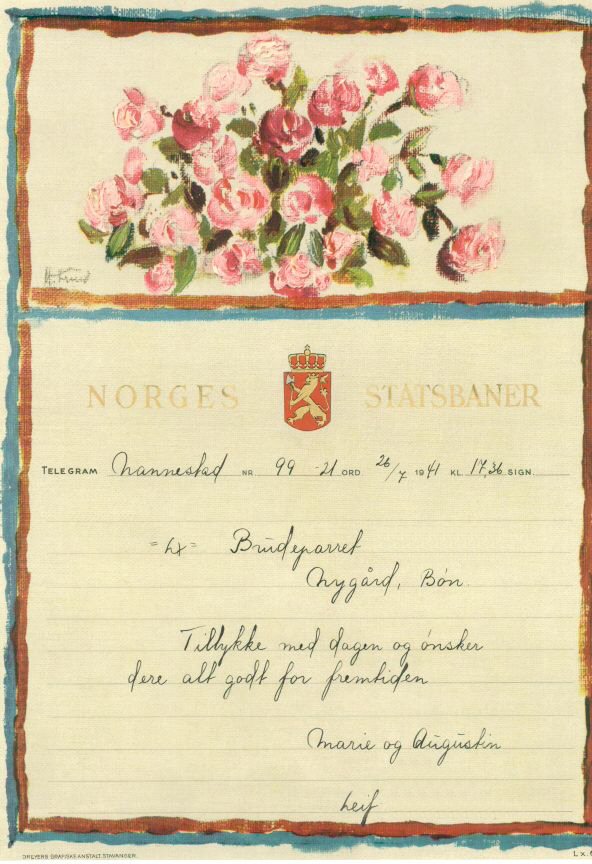 NORGES STATSBANER
TELEGRAM Nannestad NR 99 -21 ORD 26/7 1941 KL. 17,36 SIGN.
=Lx= Brudeparret
Nygård, Bøn.
Tillykke med dagen og ønsker
dere alt godt for fremtiden
Marie og Augustin
Leif
DREYERS GRAFISKE ANSTALT. STAVANGER.